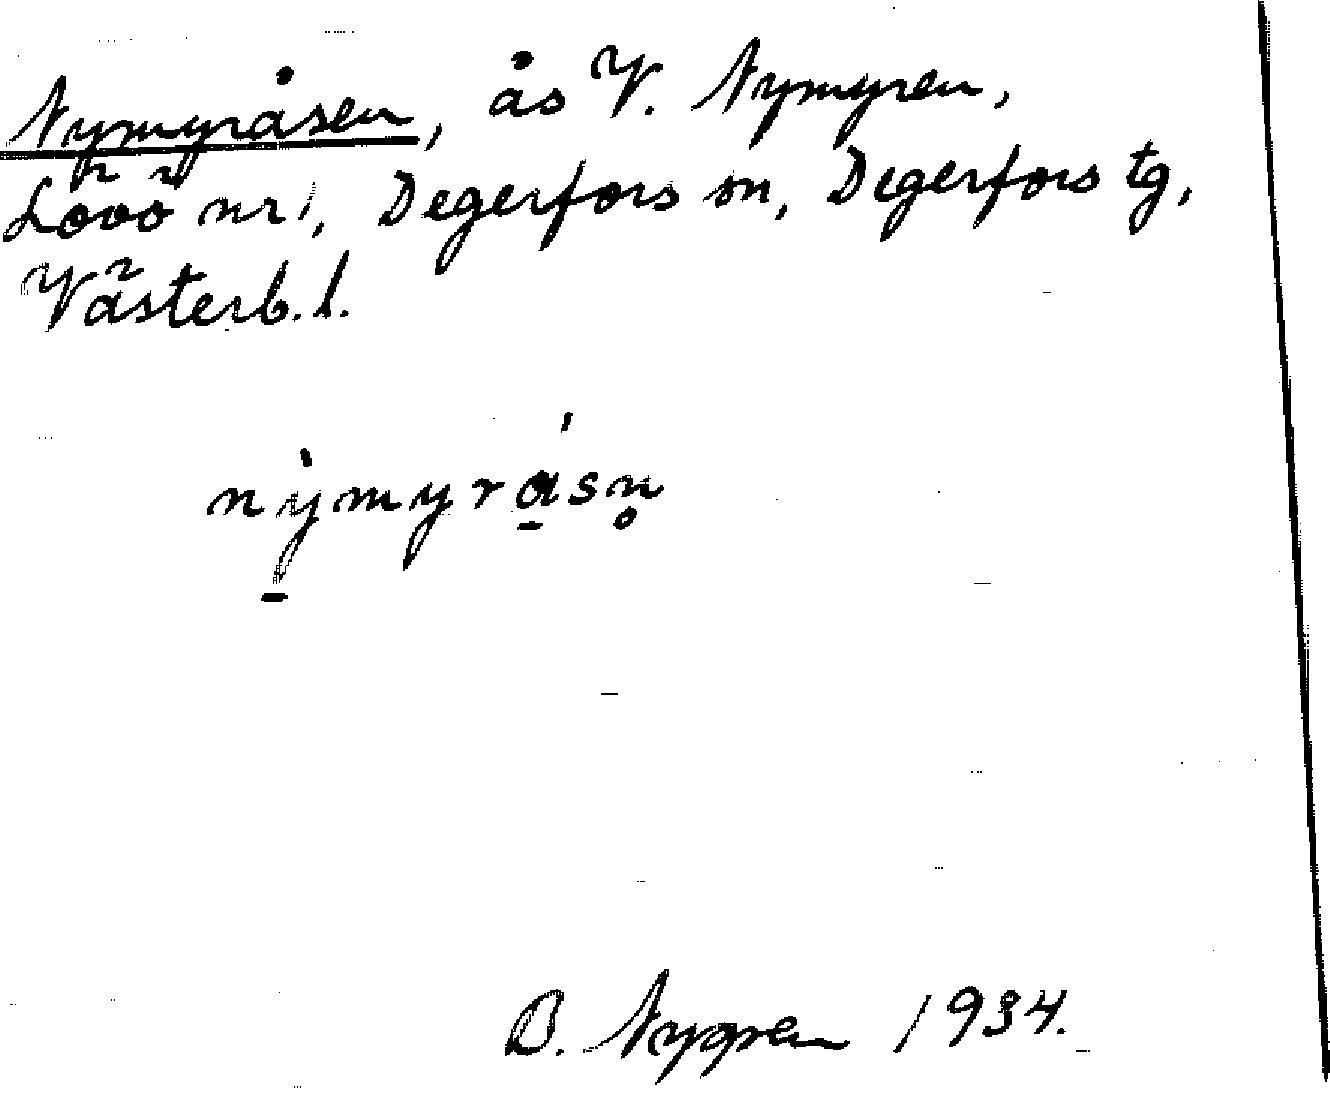 Nymyråsen, ås V. Nymyren,
Lövö nr 1, Degerfors sn, Degerfors tg,
Västerb. l.
nỳ̱myrά̱sn̥
B. Nygren 1934.